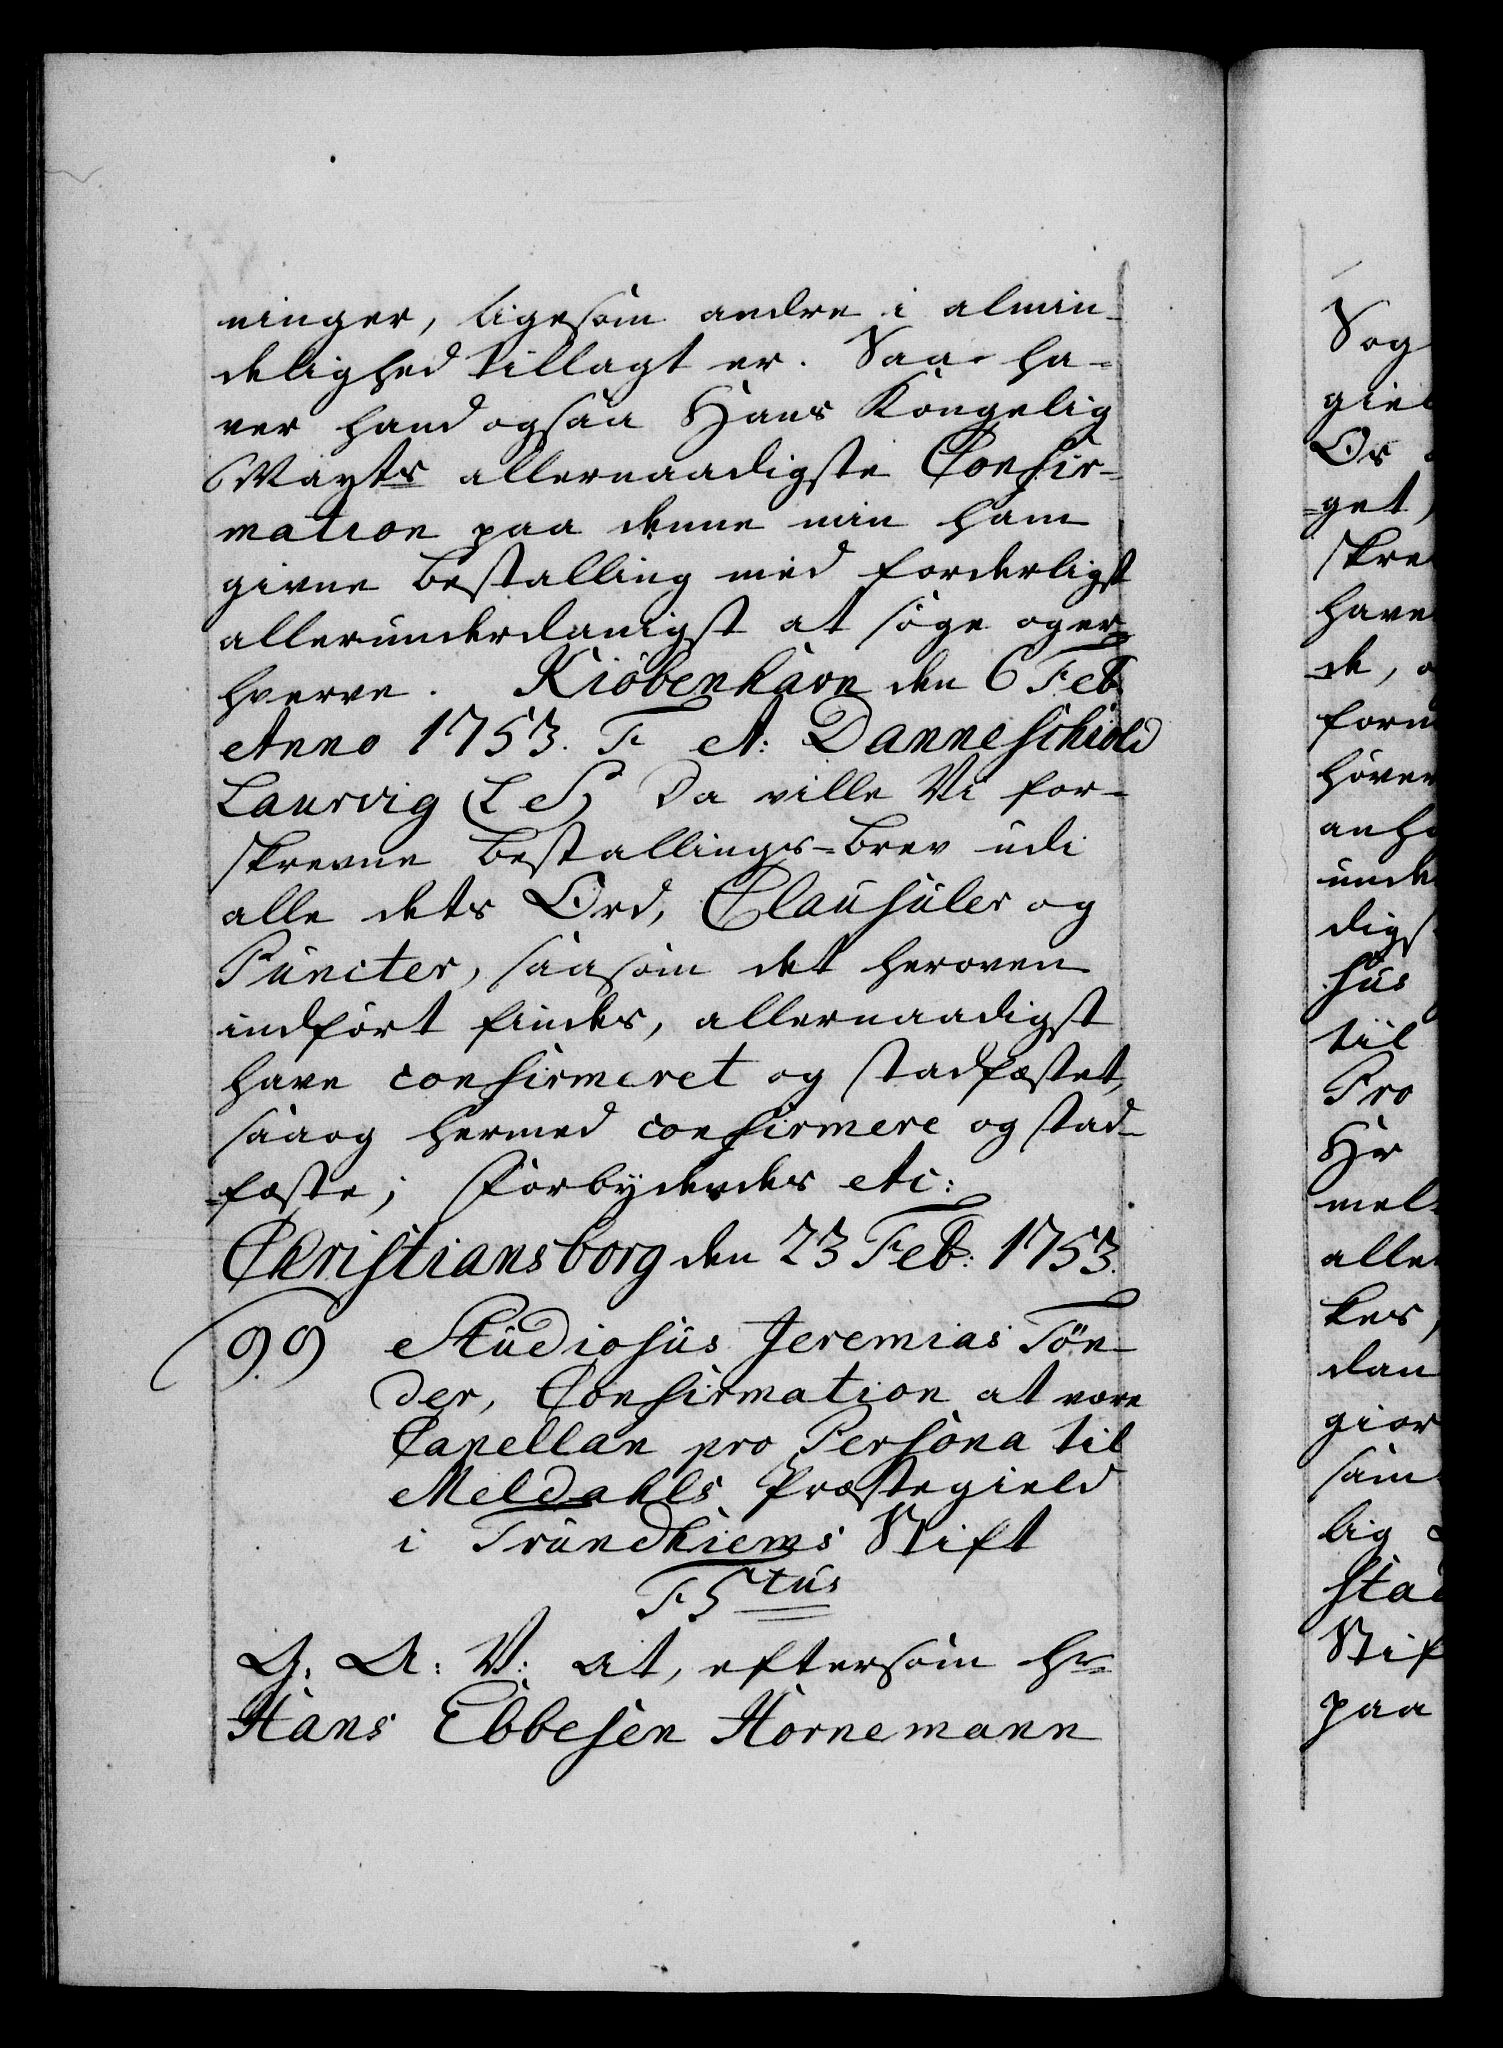 ninger, ligesom andre i almin-
delighed tillagt er. Saa ha-
ver hand ogsaa Hans Kongelig
Mayts allernaadigste Confir-
mation paa denne min ham
givne Bestalling med forderligst
allerunderdanigst at søge og er-
hverve. Kiøbenhavn den 6 Feb.
Anno 1753. F A: Danneschiold
Laurvig (L S) Da ville Vi for-
skrevne Bestallings-Brev udi
alle dets Ord, Clausuler og
Puncter, saasom det heroven
indført findes, allernaadigst
have confirmeret og stadfæstet,
saa og hermed confirmere og stad-
fæste; Forbydendes etc:
Christiansborg den 23 Feb: 1753.
99 Studiosus Jeremias Tøn-
der, Confirmation at være
Capellan pro Persona til
Meldahls Præstegield
i Trundhiems Stift
F 5tus
G. A: V: at, eftersom Hr
Hans Ebbesen Hornemann
Sog
giel
Os
get,
skre
have
de,
form
høver
anho
unde
digs
sus
til
Pro
Hr
mel
alle
kes,
dan
gior
sam
lig
stad
Stif
paa